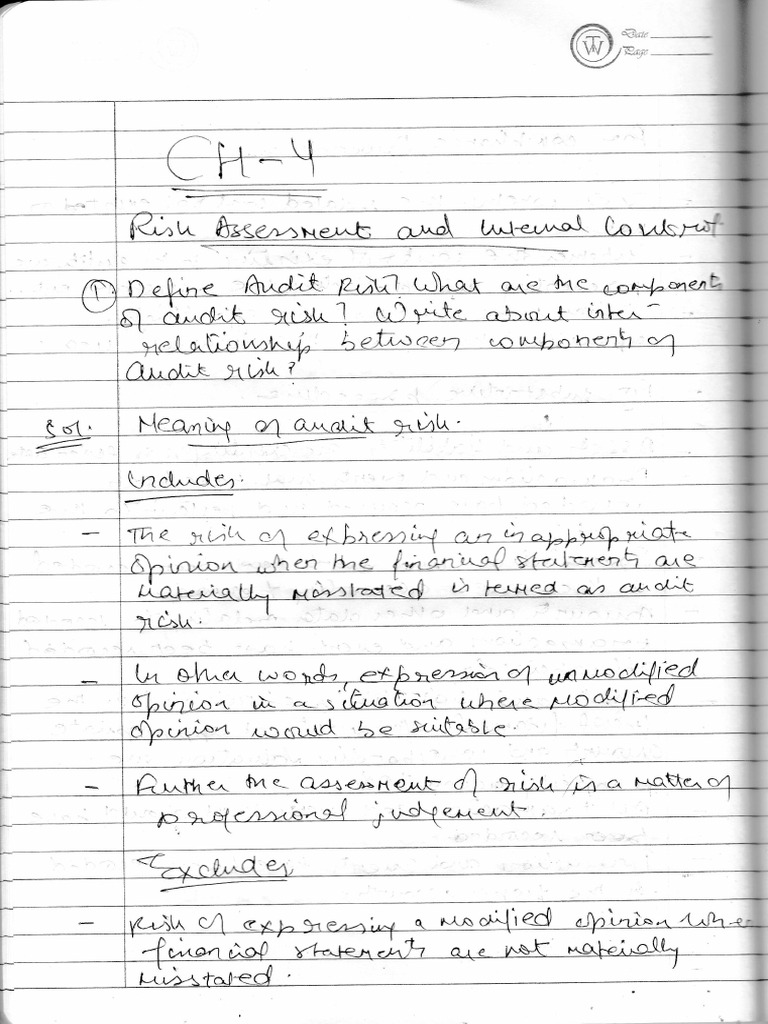 TW
Date
Page
CH-4
Risk Assessment and Internal Control
① Define Audit Risk? What are the components
of audit risk? Write about inter-
relationship between components of
audit risk?
Sol. Meaning of audit risk.
Includes.
- The risk of expressing an inappropriate
opinion when the financial statements are
materially misstated is termed as audit
risk.
- In other words, expression of unmodified
opinion in a situation where modified
opinion would be suitable.
- Further the assessment of risk is a matter of
professional judgement.
Excludes
- Risk of expressing a modified opinion when
financial statements are not materially
misstated.